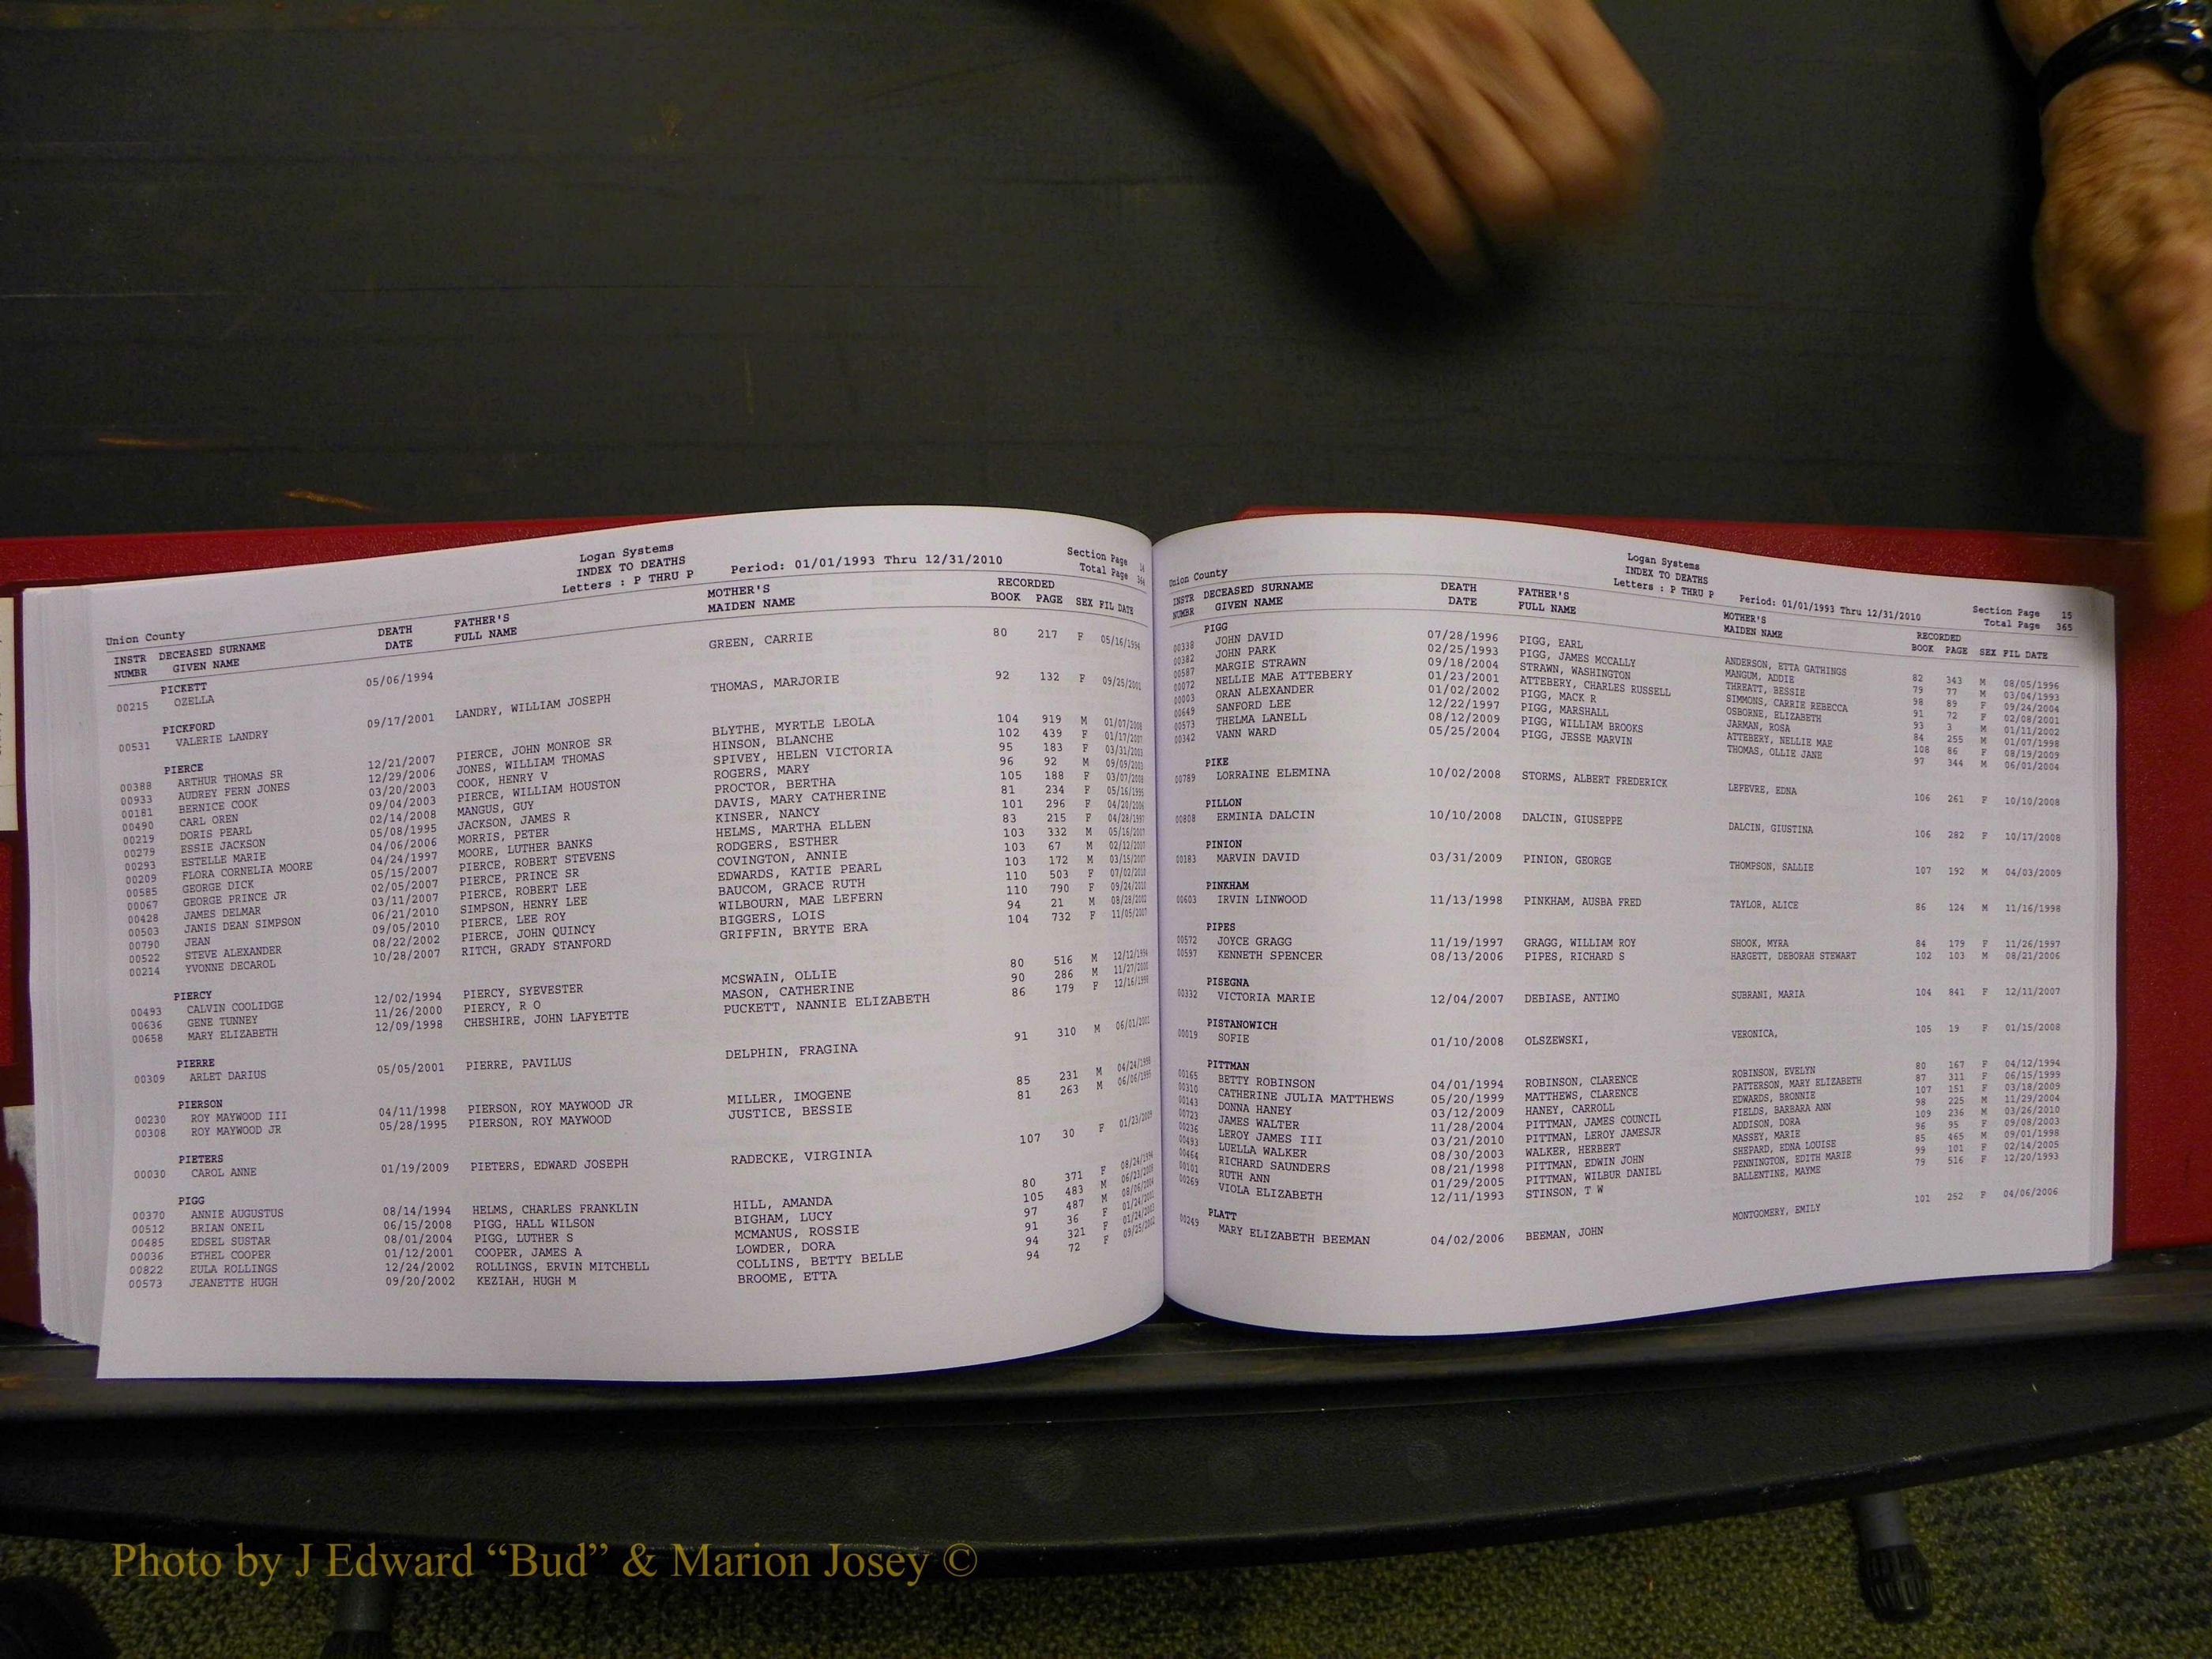 Logan Systems
INDEX TO DEATHS
Letters : P THRU P Period: 01/01/1993 Thru 12/31/2010
Section Page 14
Total Page 364
Union County
INSTR DECEASED SURNAME DEATH FATHER'S MOTHER'S RECORDED
NUMBR GIVEN NAME DATE FULL NAME MAIDEN NAME BOOK PAGE SEX FIL DATE
PICKETT
00215 OZELLA 05/06/1994 GREEN, CARRIE 80 217 F 05/16/1994
PICKFORD
00531 VALERIE LANDRY 09/17/2001 LANDRY, WILLIAM JOSEPH THOMAS, MARJORIE 92 132 F 09/25/2001
PIERCE
00388 ARTHUR THOMAS SR 12/21/2007 PIERCE, JOHN MONROE SR BLYTHE, MYRTLE LEOLA 104 919 M 01/07/2008
00933 AUDREY FERN JONES 12/29/2006 JONES, WILLIAM THOMAS HINSON, BLANCHE 102 439 F 01/17/2007
00181 BERNICE COOK 03/20/2003 COOK, HENRY V SPIVEY, HELEN VICTORIA 95 183 F 03/31/2003
00490 CARL OREN 09/04/2003 PIERCE, WILLIAM HOUSTON ROGERS, MARY 96 92 M 09/09/2003
00219 DORIS PEARL 02/14/2008 MANGUS, GUY PROCTOR, BERTHA 105 188 F 03/07/2008
00279 ESSIE JACKSON 05/08/1995 JACKSON, JAMES R DAVIS, MARY CATHERINE 81 234 F 05/16/1995
00293 ESTELLE MARIE 04/06/2006 MORRIS, PETER KINSER, NANCY 101 296 F 04/20/2006
00209 FLORA CORNELIA MOORE 04/24/1997 MOORE, LUTHER BANKS HELMS, MARTHA ELLEN 83 215 F 04/28/1997
00585 GEORGE DICK 05/15/2007 PIERCE, ROBERT STEVENS RODGERS, ESTHER 103 332 M 05/16/2007
00067 GEORGE PRINCE JR 02/05/2007 PIERCE, PRINCE SR COVINGTON, ANNIE 103 67 M 02/12/2007
00428 JAMES DELMAR 03/11/2007 PIERCE, ROBERT LEE EDWARDS, KATIE PEARL 103 172 M 03/15/2007
00503 JANIS DEAN SIMPSON 06/21/2010 SIMPSON, HENRY LEE BAUCOM, GRACE RUTH 110 503 F 07/02/2010
00790 JEAN 09/05/2010 PIERCE, LEE ROY WILBOURN, MAE LEFERN 110 790 F 09/24/2010
00522 STEVE ALEXANDER 08/22/2002 PIERCE, JOHN QUINCY BIGGERS, LOIS 94 21 M 08/28/2002
00214 YVONNE DECAROL 10/28/2007 RITCH, GRADY STANFORD GRIFFIN, BRYTE ERA 104 732 F 11/05/2007
PIERCY
00493 CALVIN COOLIDGE 12/02/1994 PIERCY, SYEVESTER MCSWAIN, OLLIE 80 516 M 12/12/1994
00636 GENE TUNNEY 11/26/2000 PIERCY, R O MASON, CATHERINE 90 286 M 11/27/2000
00658 MARY ELIZABETH 12/09/1998 CHESHIRE, JOHN LAFYETTE PUCKETT, NANNIE ELIZABETH 86 179 F 12/16/1998
PIERRE
00309 ARLET DARIUS 05/05/2001 PIERRE, PAVILUS DELPHIN, FRAGINA 91 310 M 06/01/2001
PIERSON
00230 ROY MAYWOOD III 04/11/1998 PIERSON, ROY MAYWOOD JR MILLER, IMOGENE 85 231 M 04/24/1998
00308 ROY MAYWOOD JR 05/28/1995 PIERSON, ROY MAYWOOD JUSTICE, BESSIE 81 263 M 06/06/1995
PIETERS
00030 CAROL ANNE 01/19/2009 PIETERS, EDWARD JOSEPH RADECKE, VIRGINIA 107 30 F 01/23/2009
PIGG
00370 ANNIE AUGUSTUS 08/14/1994 HELMS, CHARLES FRANKLIN HILL, AMANDA 80 371 F 08/24/1994
00512 BRIAN ONEIL 06/15/2008 PIGG, HALL WILSON BIGHAM, LUCY 105 483 M 06/23/2008
00485 EDSEL SUSTAR 08/01/2004 PIGG, LUTHER S MCMANUS, ROSSIE 97 487 M 08/06/2004
00036 ETHEL COOPER 01/12/2001 COOPER, JAMES A LOWDER, DORA 91 36 F
00822 EULA ROLLINGS 12/24/2002 ROLLINGS, ERVIN MITCHELL COLLINS, BETTY BELLE 94 321 F 01/24/2003
00573 JEANETTE HUGH 09/20/2002 KEZIAH, HUGH M BROOME, ETTA 94 72 F 09/25/2002
Logan Systems
INDEX TO DEATHS
Letters : P THRU P Period: 01/01/1993 Thru 12/31/2010
Section Page 15
Total Page 365
Union County
INSTR DECEASED SURNAME DEATH FATHER'S MOTHER'S RECORDED
NUMBR GIVEN NAME DATE FULL NAME MAIDEN NAME BOOK PAGE SEX FIL DATE
PIGG
00338 JOHN DAVID 07/28/1996 PIGG, EARL ANDERSON, ETTA GATHINGS 82 343 M 08/05/1996
00382 JOHN PARK 02/25/1993 PIGG, JAMES MCCALLY MANGUM, ADDIE 79 77 M 03/04/1993
00587 MARGIE STRAWN 09/18/2004 STRAWN, WASHINGTON THREATT, BESSIE 98 89 F 09/24/2004
00072 NELLIE MAE ATTEBERY 01/23/2001 ATTEBERY, CHARLES RUSSELL SIMMONS, CARRIE REBECCA 91 72 F 02/08/2001
00003 ORAN ALEXANDER 01/02/2002 PIGG, MACK R OSBORNE, ELIZABETH 93 3 M 01/11/2002
00649 SANFORD LEE 12/22/1997 PIGG, MARSHALL JARMAN, ROSA 84 255 M 01/07/1998
00573 THELMA LANELL 08/12/2009 PIGG, WILLIAM BROOKS ATTEBERY, NELLIE MAE 108 86 F 08/19/2009
00342 VANN WARD 05/25/2004 PIGG, JESSE MARVIN THOMAS, OLLIE JANE 97 344 M 06/01/2004
PIKE
00789 LORRAINE ELEMINA 10/02/2008 STORMS, ALBERT FREDERICK LEFEVRE, EDNA 106 261 F 10/10/2008
PILLON
00808 ERMINIA DALCIN 10/10/2008 DALCIN, GIUSEPPE DALCIN, GIUSTINA 106 282 F 10/17/2008
PINION
00183 MARVIN DAVID 03/31/2009 PINION, GEORGE THOMPSON, SALLIE 107 192 M 04/03/2009
PINKHAM
00603 IRVIN LINWOOD 11/13/1998 PINKHAM, AUSBA FRED TAYLOR, ALICE 86 124 M 11/16/1998
PIPES
00572 JOYCE GRAGG 11/19/1997 GRAGG, WILLIAM ROY SHOOK, MYRA 84 179 F 11/26/1997
00597 KENNETH SPENCER 08/13/2006 PIPES, RICHARD S HARGETT, DEBORAH STEWART 102 103 M 08/21/2006
PISEGNA
00332 VICTORIA MARIE 12/04/2007 DEBIASE, ANTIMO SUBRANI, MARIA 104 841 F 12/11/2007
PISTANOWICH
00019 SOFIE 01/10/2008 OLSZEWSKI, VERONICA, 105 19 F 01/15/2008
PITTMAN
00165 BETTY ROBINSON 04/01/1994 ROBINSON, CLARENCE ROBINSON, EVELYN 80 167 F 04/12/1994
00310 CATHERINE JULIA MATTHEWS 05/20/1999 MATTHEWS, CLARENCE PATTERSON, MARY ELIZABETH 87 311 F 06/15/1999
00143 DONNA HANEY 03/12/2009 HANEY, CARROLL EDWARDS, BRONNIE 107 151 F 03/18/2009
00723 JAMES WALTER 11/28/2004 PITTMAN, JAMES COUNCIL FIELDS, BARBARA ANN 98 225 M 11/29/2004
00236 LEROY JAMES III 03/21/2010 PITTMAN, LEROY JAMESJR ADDISON, DORA 109 236 M 03/26/2010
00493 LUELLA WALKER 08/30/2003 WALKER, HERBERT MASSEY, MARIE 96 95 F 09/08/2003
00464 RICHARD SAUNDERS 08/21/1998 PITTMAN, EDWIN JOHN SHEPARD, EDNA LOUISE 85 465 M 09/01/1998
00101 RUTH ANN 01/29/2005 PITTMAN, WILBUR DANIEL PENNINGTON, EDITH MARIE 99 101 F 02/14/2005
00269 VIOLA ELIZABETH 12/11/1993 STINSON, T W BALLENTINE, MAYME 79 516 F 12/20/1993
PLATT
00249 MARY ELIZABETH BEEMAN 04/02/2006 BEEMAN, JOHN MONTGOMERY, EMILY 101 252 F 04/06/2006
Photo by J Edward “Bud” & Marion Josey ©